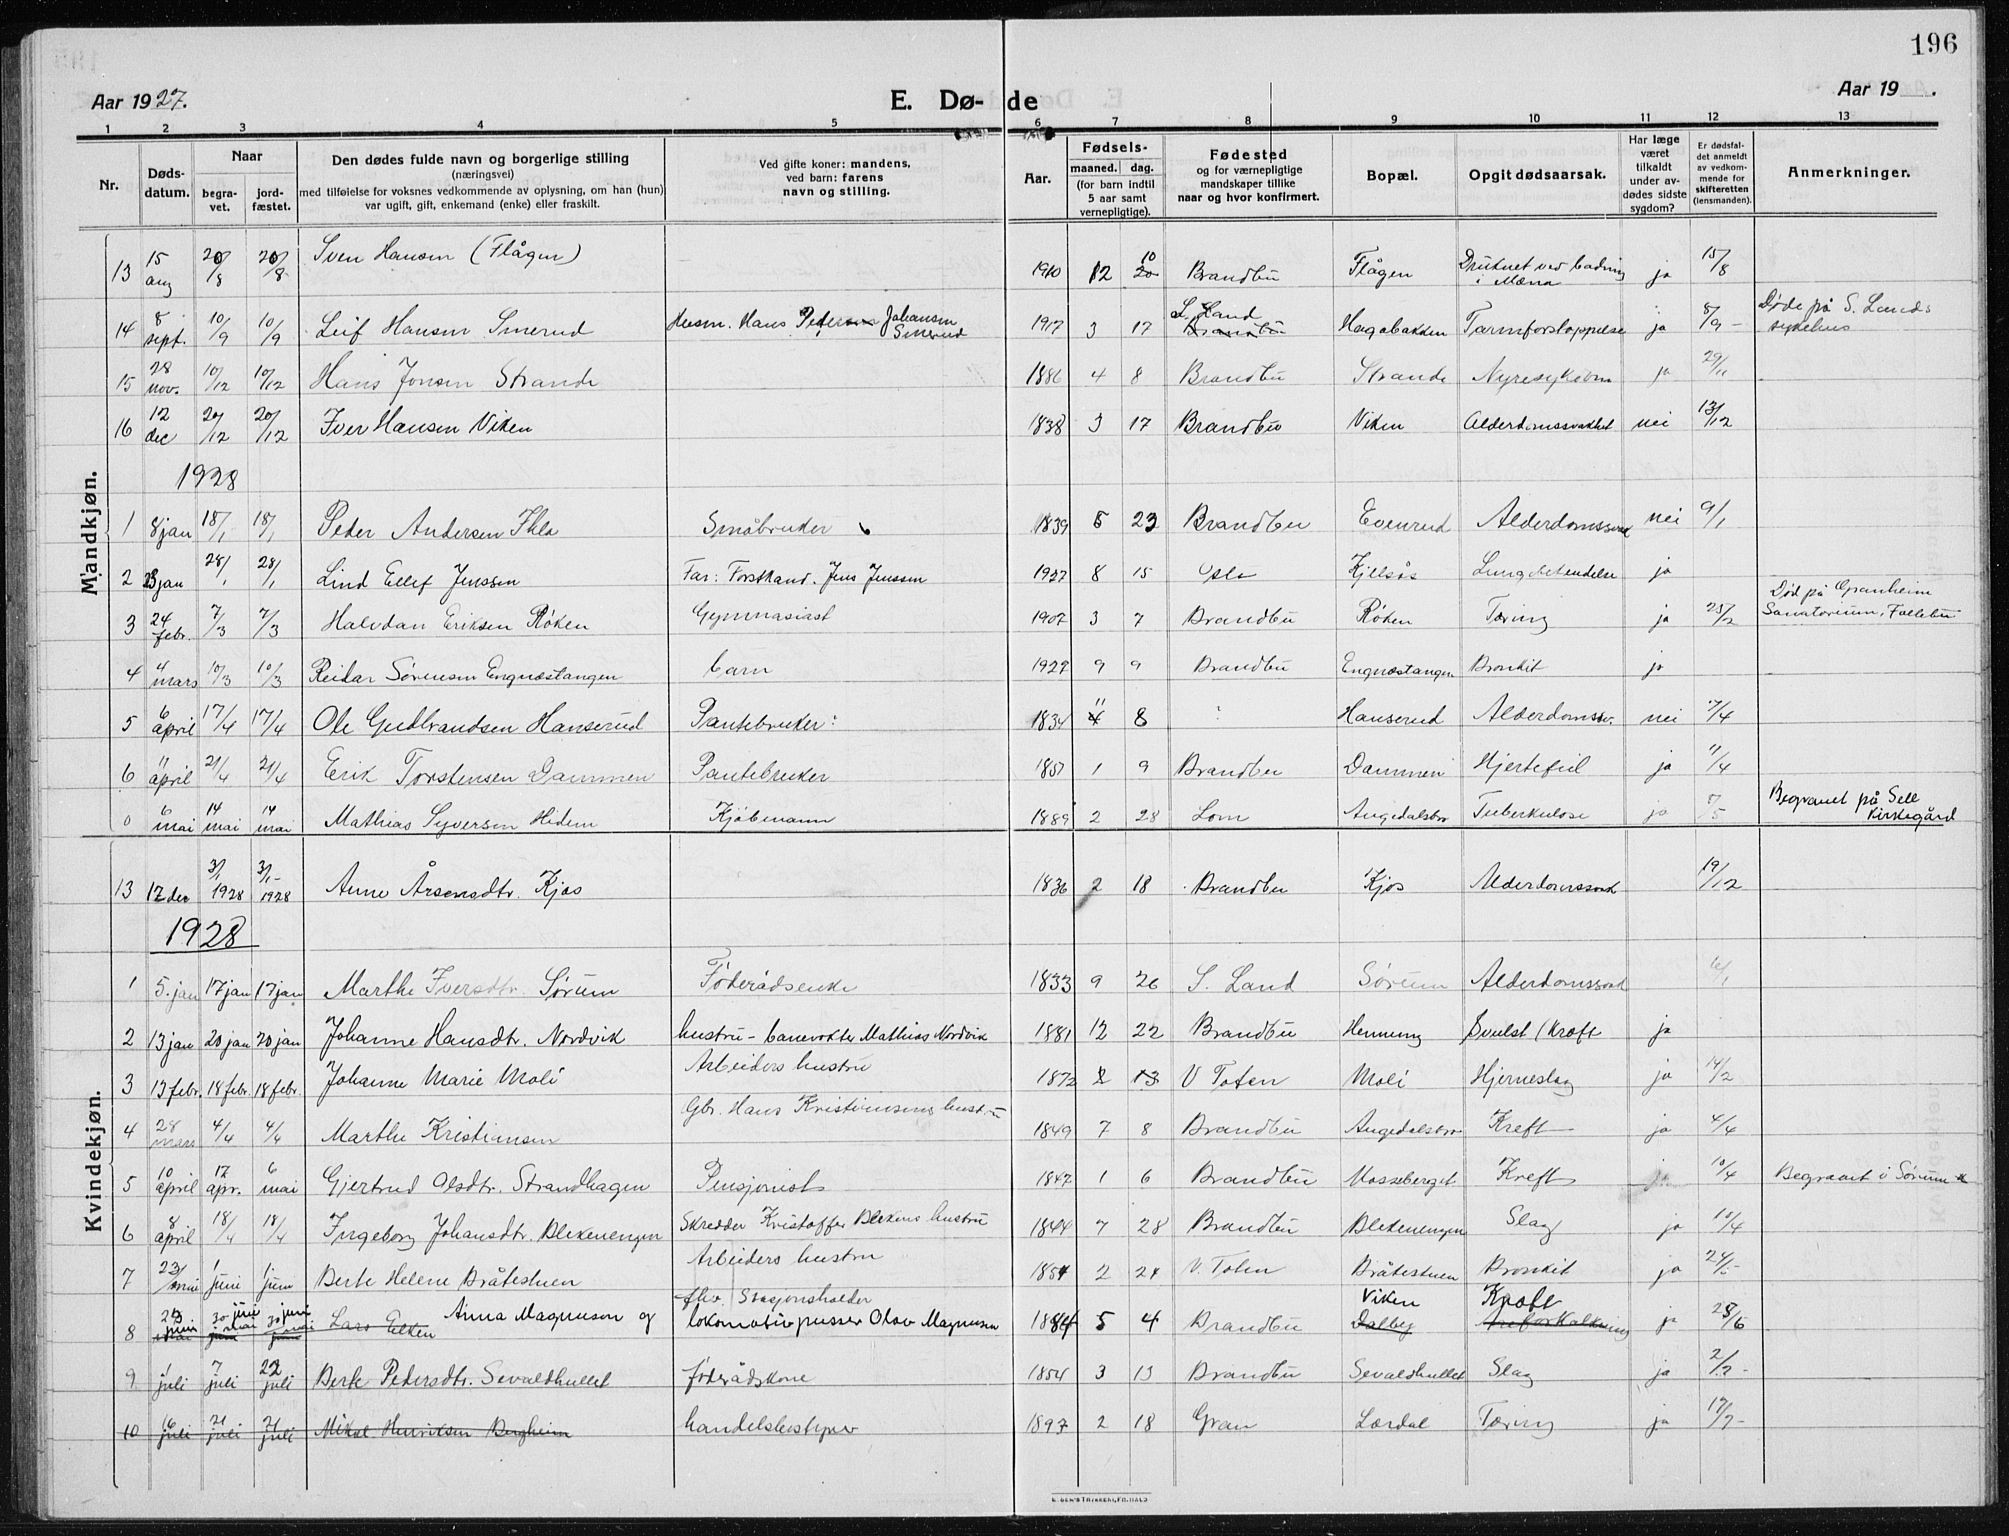 196
Aar 1927. E. Dø- de Aar 19 .
1 2 3 4 5 6 7 8 9 10 11 12 13
Nr. Døds-datum. Naar begra-vet. jord-fæstet. Den dødes fulde navn og borgerlige stilling (næringsvei) med tilføielse for voksnes vedkommende av oplysning, om han (hun) var ugift, gift, enkemand (enke) eller fraskilt. Ved gifte koner: mandens, ved barn: farens navn og stilling. Aar. Fødsels- maaned. dag. (for barn indtil 5 aar samt vernepligtige). Fødested og for værnepligtige mandskaper tillike naar og hvor konfirmert. Bopæl. Opgit dødsaarsak. Har læge været tilkaldt under av-dødes sidste sygdom? Er dødsfal-det anmeldt av vedkom-mende for skifteretten (lensmanden). Anmerkninger.
Mandkjøn.
13 15 aug 20/8 20/8 Sven Hansen (Flågen) 1910 12 10 20 Brandbu Flågen Druknet ved badning i Mæna ja 15/8
14 8 sept. 10/9 10/9 Leif Hansen Smerud Husm. Hans Petersen Johansen Smerud 1917 3 17 S. Land Brandbu Hagabakken Tarmforstoppelse ja 8/9 - Døde på S. Lands sykehus
15 28 nov. 10/12 10/12 Hans Jonsen Strande 1886 4 8 Brandbu Strande Nyresykdom ja 29/11
16 12 dec 20/12 20/12 Iver Hansen Viken 1838 3 17 Brandbu Viken Alderdomssvakhet nei 13/12
1928
1 8 jan 18/1 18/1 Peder Andersen Ihle Småbruker 1839 5 23 Brandbu Evenrud Alderdomssvak nei 9/1
2 23 jan 28/1 28/1 Lind Ellef Jenssen Far: Forstkand. Jens Jenssen 1927 8 15 Oslo Kjelsås Lungebetendelse ja
3 24 febr. 7/3 7/3 Halvdan Eriksen Røken Gymnasiast 1907 3 7 Brandbu Røken Tæring ja 25/2 Død på Granheim Sanatorium, Follebu
4 4 mars 10/3 10/3 Reidar Sørensen Engnæstangen barn 1927 9 9 Brandbu Engnæstangen Bronkit ja
5 6 april 17/4 17/4 Ole Gudbrandsen Hanserud Pantebruker 1834 4 11 8 Hanserud Alderdomssv. nei 7/4
6 11 april 21/4 21/4 Erik Torstensen Dammen Pantebruker 1857 1 9 Brandbu Dammen Hjertefeil ja 11/4
0 6 mai 14 mai 14 mai Mathias Syversen Hidem Kjøbmann 1889 2 28 Lom Augedalsbro Tuberkulose ja 7/5 Begravet på Sell kirkegård
Kvindekjøn.
13 17 dec 3/1 1928 3/1 1928 Anne Årsensdtr. Kjos 1836 2 18 Brandbu Kjos Alderdomssvak 19/12
1928
1 5. jan 17 jan 17 jan Marthe Iversdtr. Sørum Føderådsenke 1833 9 26 S. Land Sørum Alderdomssvak 6/1
2 13 jan 20 jan 20 jan Johanne Hansdtr. Nordvik hustru - banevokter Mathias Nordvik 1881 12 22 Brandbu Hennung Svulst (Kræft ja
3 13 febr. 18 febr. 18 febr. Johanne Marie Moli Arbeiders hustru 1872 2 13 V Toten Moli Hjerneslag ja 14/2
4 28 mars 4/4 4/4 Marthe Kristiansen Gbr. Hans Kristiansens hustru 1849 7 8 Brandbu Augedalsbro Kreft ja 4/4
5 10 april 17 apr. 6 mai Gjertrud Olsdtr. Strandhagen Pensjonist 1847 1 6 Brandbu Mosseberget Kreft ja 10/4 Begravet i Sørum
6 8 april 18/4 18/4 Ingeborg Johansdtr. Blekenengen Skredder Kristoffer Blekens hustru 1844 7 28 Brandbu Blekenengen Slag ja 10/4
7 23 mai 1 juni 1 juni Berte Helene Bråtestuen Arbeiders hustru 1854 2 24 V. Toten Bråtestuen Bronkit ja 24/5
8 23 juni 30 juni 30 juni Lars Elken Anna Magnuson og fhv. Stasjonsholder lokomotivpusser Olav Magnusen 1884 5 4 Brandbu Viken Dalbey Kræft Areforkalkning ja 28/6
9 1 juli 7 juli 22 juli Berte Pedersdtr. Sevaldhullet føderådskone 1854 3 13 Brandbu Sevaldhullet Slag ja 2/7
10 16 juli 21 juli 21 juli Mikal Henriksen Bergheim handelsbestyrer 1897 2 18 Gran Lærdal Tæring ja 17/7